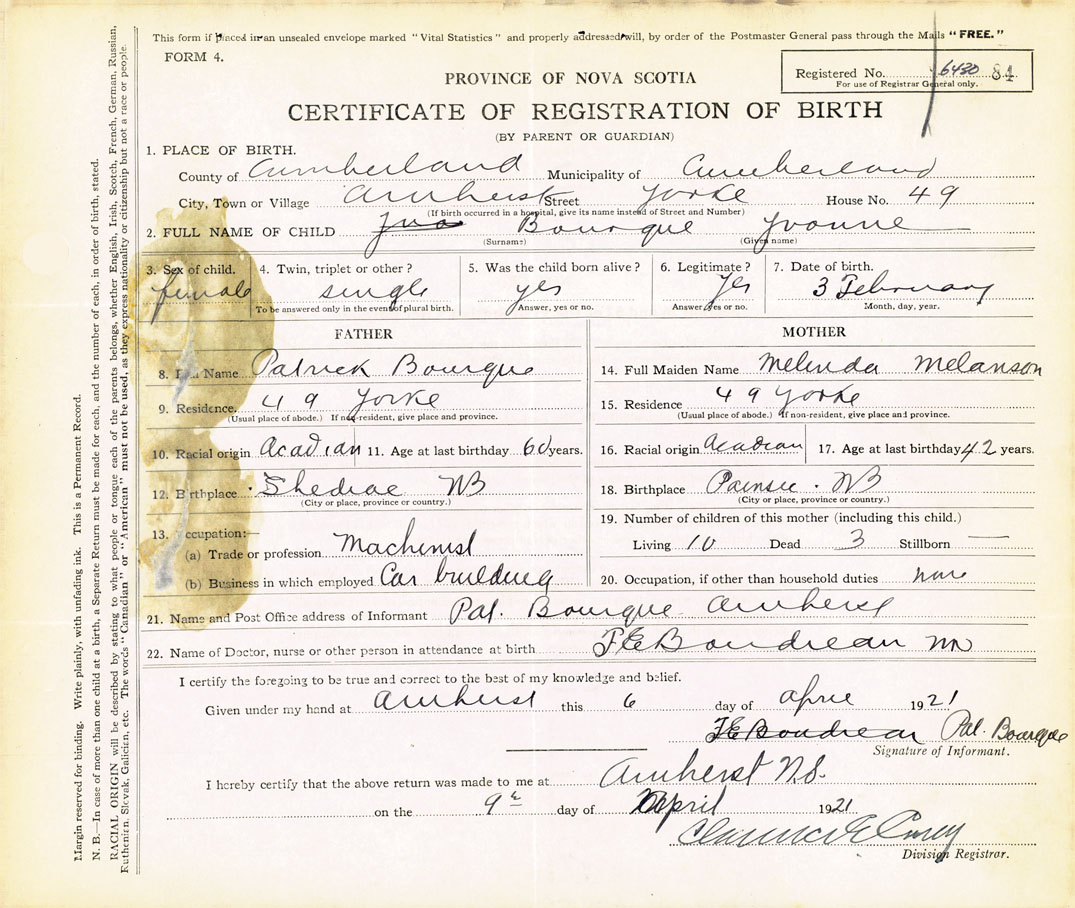 This form if placed in an unsealed envelope marked "Vital Statistics" and properly addressed will, by order of the Postmaster General pass through the Mails "FREE."
FORM 4.
Registered No. 6430 84
For use of Registrar General only.
PROVINCE OF NOVA SCOTIA
CERTIFICATE OF REGISTRATION OF BIRTH
(BY PARENT OR GUARDIAN)
1. PLACE OF BIRTH.
County of Cumberland Municipality of Cumberland
City, Town or Village Amherst Street Yorke House No. 49
(If birth occurred in a hospital, give its name instead of Street and Number)
2. FULL NAME OF CHILD Bourque Yvonne
(Surname) (Given name)
3. Sex of child. 4. Twin, triplet or other? 5. Was the child born alive? 6. Legitimate? 7. Date of birth.
female single yes Yes 3 February
To be answered only in the event of plural birth. Answer, yes or no. Answer, yes or no. Month, day, year.
FATHER
8. Full Name Patrick Bourque
9. Residence. 49 Yorke
(Usual place of abode.) If non-resident, give place and province.
10. Racial origin Acadian 11. Age at last birthday 60 years.
12. Birthplace Shediac NB
(City or place, province or country.)
13. Occupation:—
(a) Trade or profession Machinist
(b) Business in which employed Car building
MOTHER
14. Full Maiden Name Melinda Melanson
15. Residence 49 Yorke
(Usual place of abode.) If non-resident, give place and province.
16. Racial origin Acadian 17. Age at last birthday 42 years.
18. Birthplace Painsec. NB
(City or place, province or country.)
19. Number of children of this mother (including this child.)
Living 10 Dead 3 Stillborn —
20. Occupation, if other than household duties none
21. Name and Post Office address of Informant Pat. Bourque Amherst
22. Name of Doctor, nurse or other person in attendance at birth F E Boudreau MD
I certify the foregoing to be true and correct to the best of my knowledge and belief.
Given under my hand at Amherst this 6 day of April 1921
F E Boudreau Pat. Bourque
Signature of Informant.
I hereby certify that the above return was made to me at Amherst N.S.
on the 9th day of April 1921
Division Registrar.
Margin reserved for binding. Write plainly, with unfading ink. This is a Permanent Record.
N. B.—In case of more than one child at a birth, a Separate Return must be made for each, and the number of each, in order of birth, stated.
RACIAL ORIGIN will be described by stating to what people or tongue each of the parents belongs, whether English, Irish, Scotch, French, German, Russian,
Ruthenian, Slovak, Galician, etc. The words "Canadian" or "American" must not be used, as they express nationality or citizenship but not a race or people.